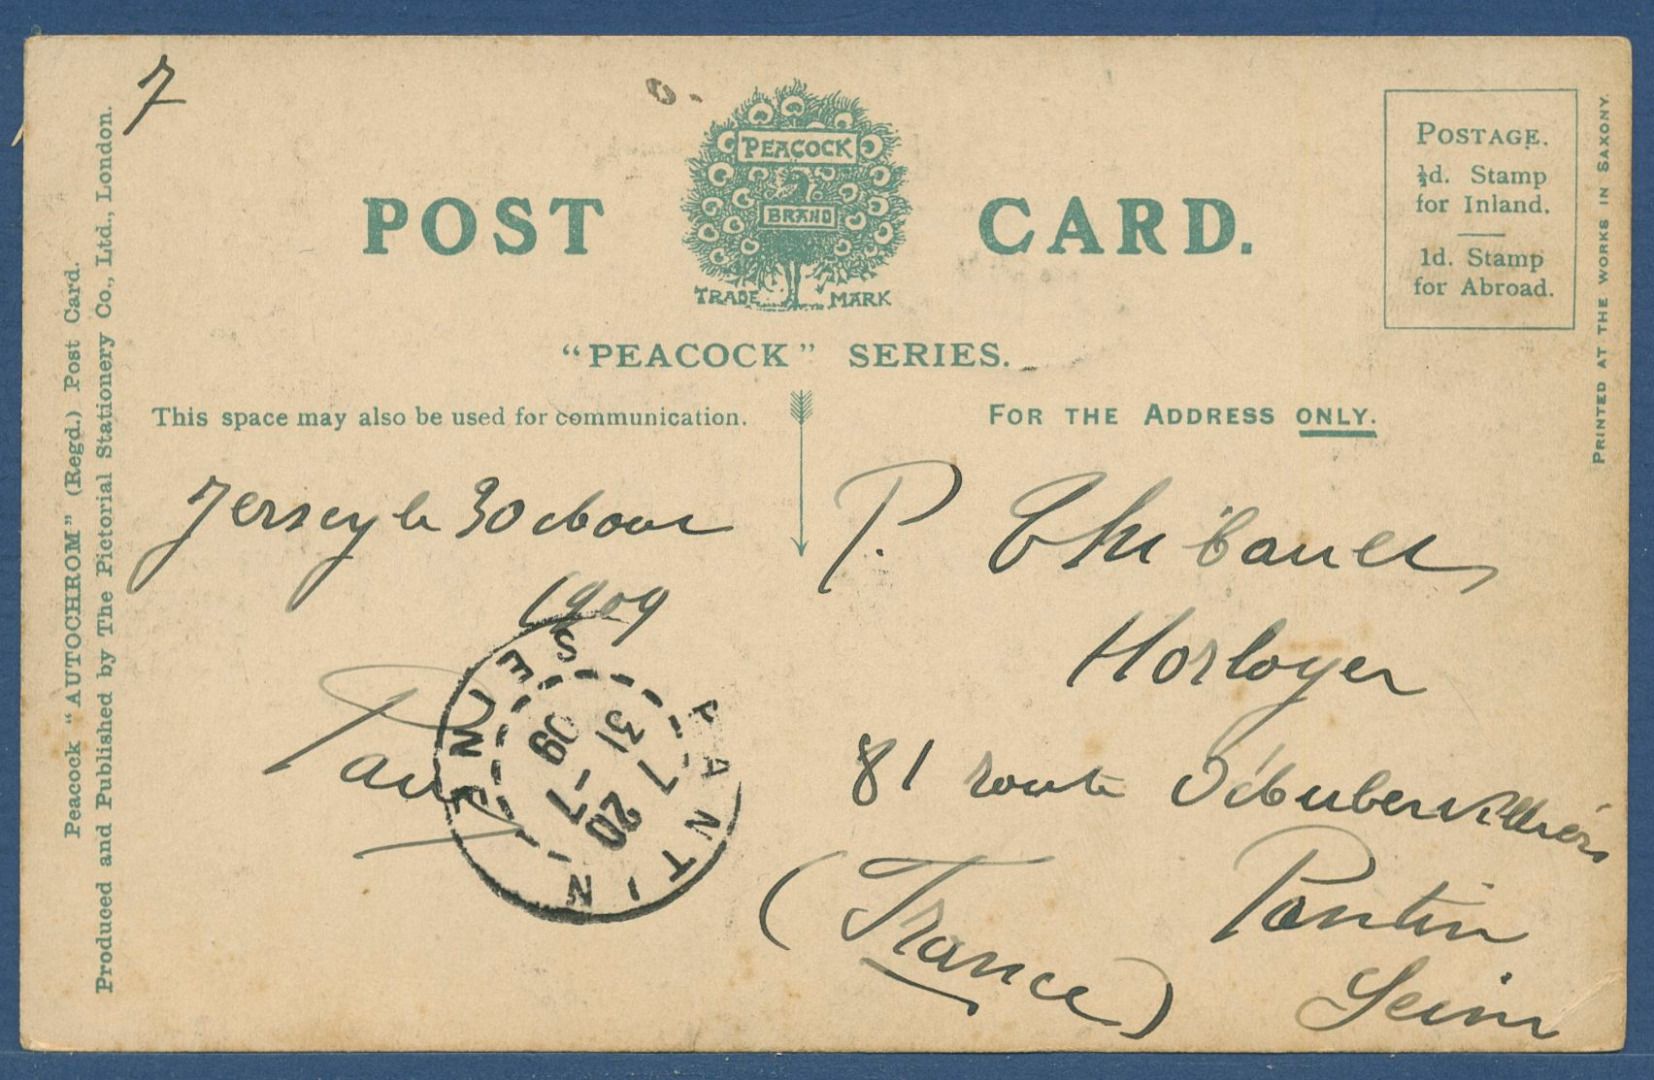 7
POST CARD.
PEACOCK
BRAND
TRADE MARK
"PEACOCK" SERIES.
POSTAGE.
½d. Stamp
for Inland.
1d. Stamp
for Abroad.
PRINTED AT THE WORKS IN SAXONY.
Peacock "AUTOCHROM" (Regd.) Post Card.
Produced and Published by The Pictorial Stationery Co., Ltd., London.
This space may also be used for communication.
FOR THE ADDRESS ONLY.
Jersey le 30
1909
Paul
PANTIN SEINE
20
31
7 09
P. Thibault
Horloger
81 route
Pantin
Seine
(France)